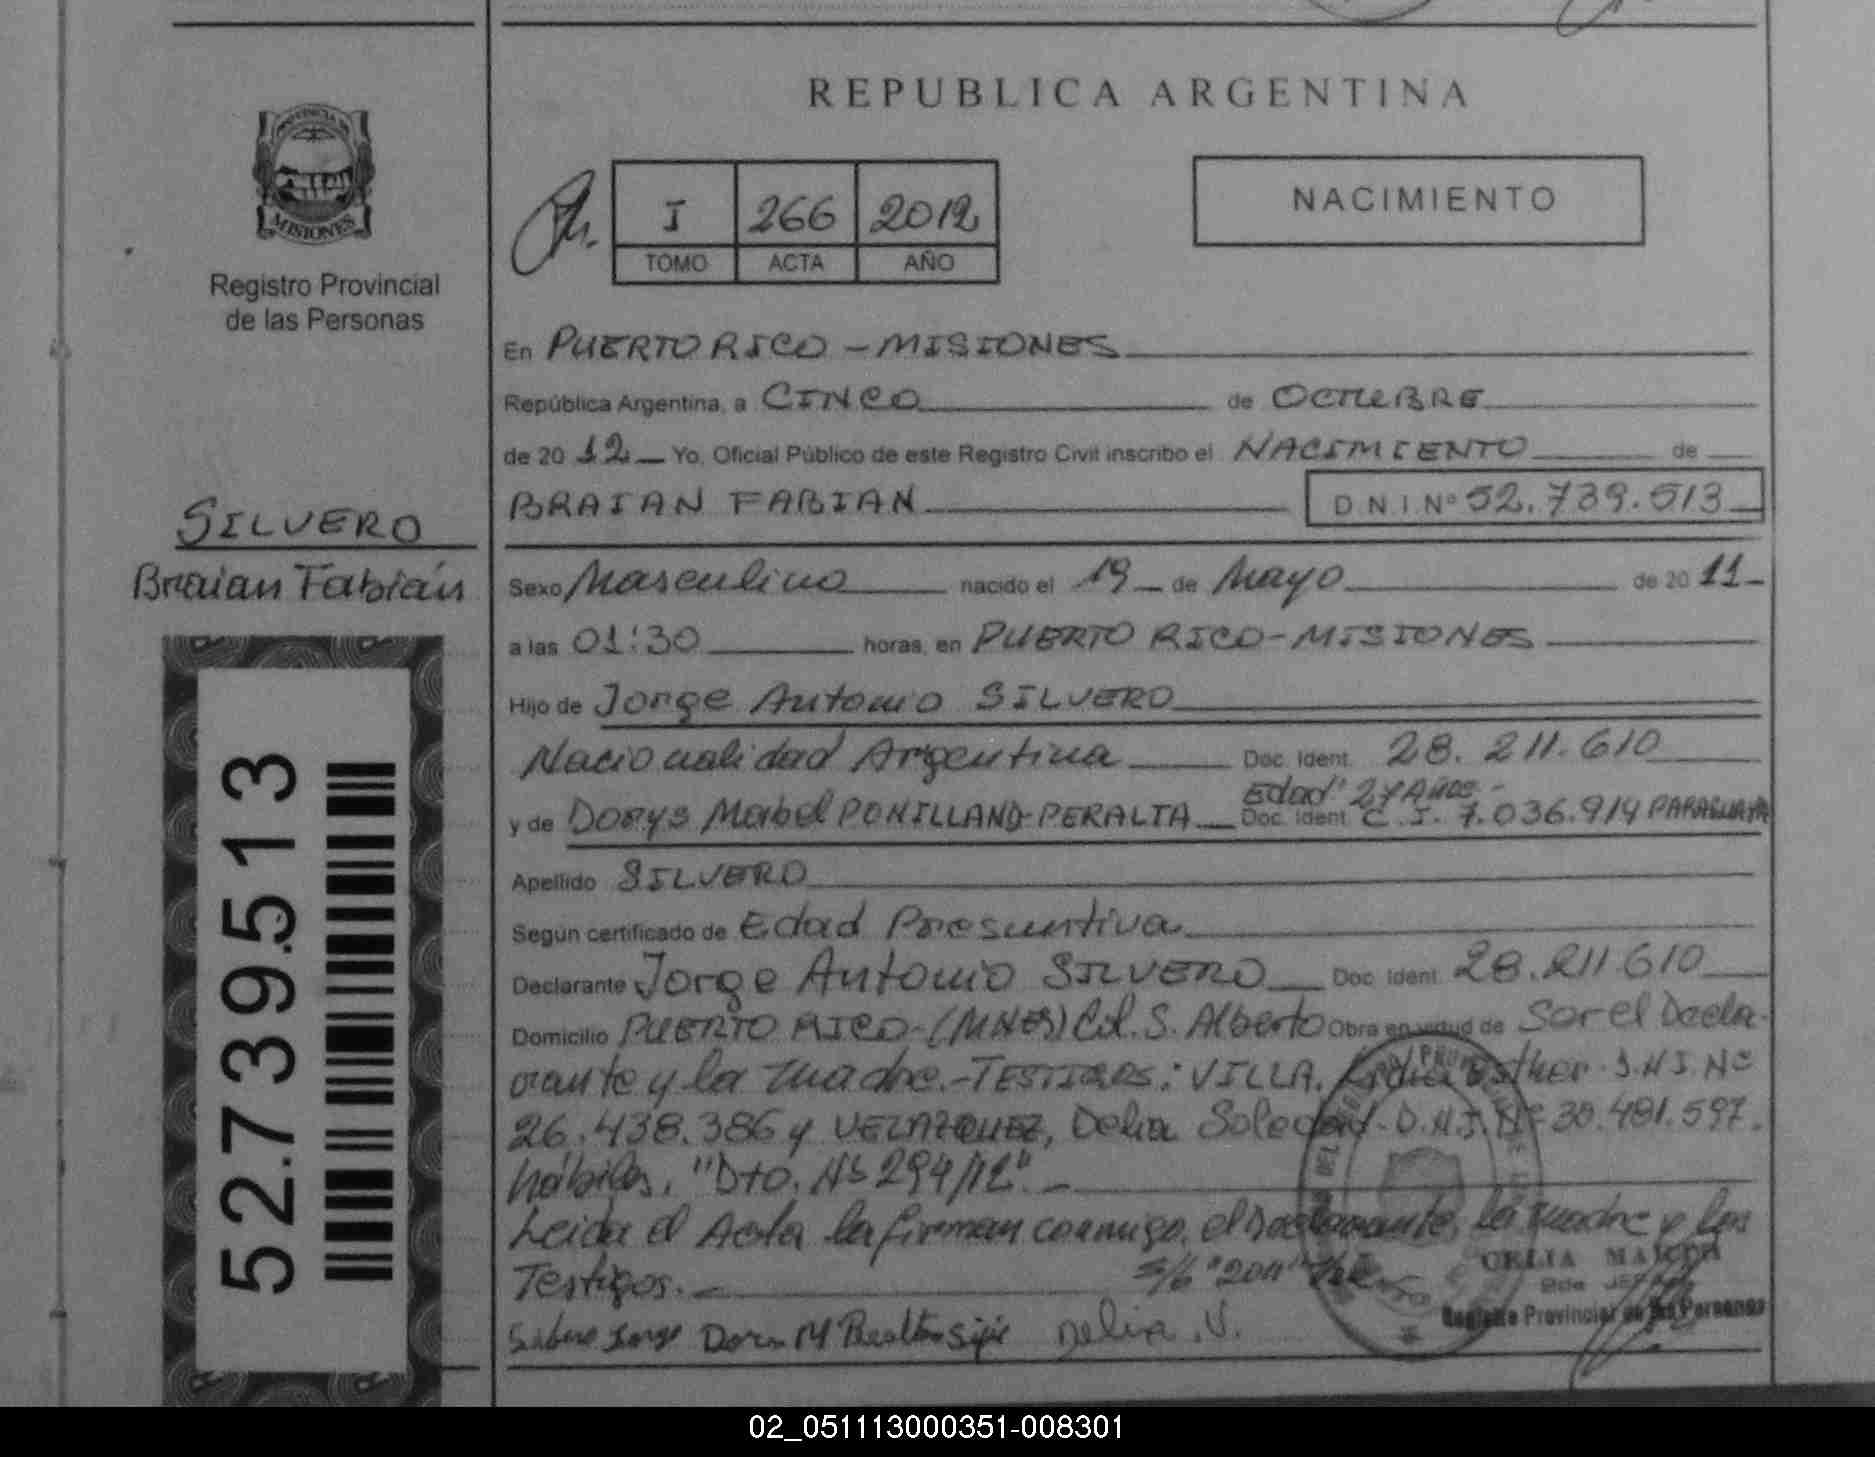 REPUBLICA ARGENTINA
PROVINCIA DE
MISIONES
Registro Provincial
de las Personas
I 266 2012
TOMO ACTA AÑO
NACIMIENTO
En PUERTO RICO - MISIONES
República Argentina, a CINCO de OCTUBRE
de 20 12 Yo, Oficial Público de este Registro Civil inscribo el NACIMIENTO de
BRAIAN FABIAN D.N.I. Nº 52.739.513
SILVERO
Braian Fabián
Sexo Masculino nacido el 19 de Mayo de 20 11
a las 01:30 horas, en PUERTO RICO-MISIONES
Hijo de Jorge Antonio SILVERO
Nacionalidad Argentina Doc. Ident. 28.211.610
Edad: 24 AÑOS.-
y de Dorys Mabel PERALTA Doc. Ident. C.I. 7.036.914 PARAGUAYA
Apellido SILVERO
Según certificado de Edad Presuntiva
Declarante Jorge Antonio SILVERO Doc. Ident. 28.211.610
Domicilio PUERTO RICO-(MNES) Col. S. Alberto Obra en virtud de Ser el Decla-
rante y la madre.- TESTIGOS: VILLA, Lidia Esther D.N.I. Nº
26.438.386 y VELAZQUEZ, Delia Soledad. D.N.I. Nº 30.481.597.
hábiles. "Dto. Nº 294/12".-
Leida el Acta la firman conmigo, el Declarante, la madre y los
Testigos.- S/b "2011"
Silvero Jorge Delia.V.
CELIA
Registro Provincial de las Personas
52.739.513
02_051113000351-008301